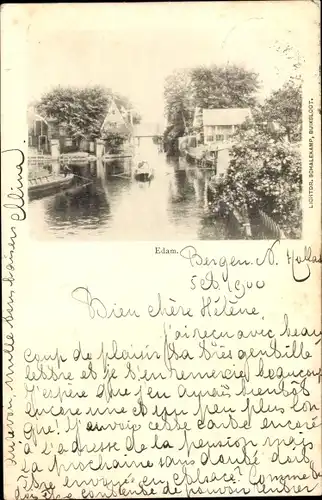 Edam.
LICHTDR. SCHALEKAMP, BUIKSLOOT.
Bergen. N. Holland
5 Oct. 1900
Bien chère Hélène,
J'ai reçu avec beau
coup de plaisir ta très gentille
lettre et je t'en remercie beaucoup
J'espère que j'en aurais bientôt
encore une et un peu plus lon
gue! J'envois cette carte encore
à l'adresse de la pension mais
ta prochaine sans doute doit
être envoyée en Alsace? Comme
être contente de pouvoir
mille bons baisers